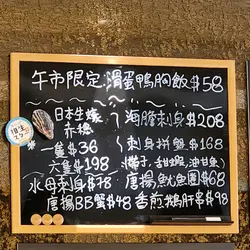 午市限定:滑蛋鴨胸飯$58
日本生蠔
赤穗
一隻$36
六隻$198
水母刺身$78
唐揚BB蟹$48
海膽刺身$208
刺身拼盤$168
(帶子、甜蝦、油甘魚)
唐揚魷魚圈$68
香煎鵝肝串$98